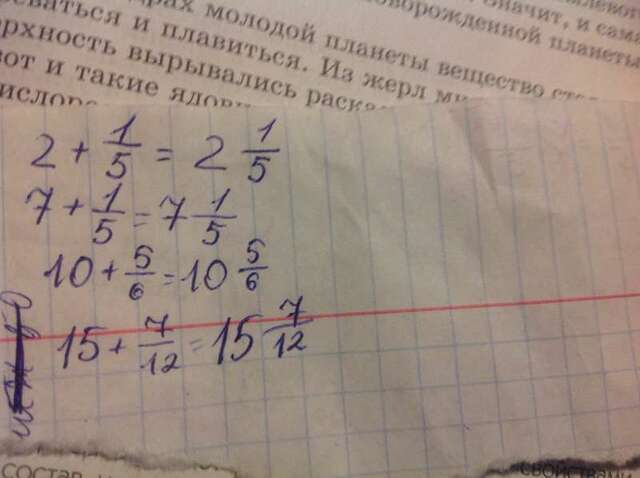 драх молодой планеты вещество
ваться и плавиться. Из жерл
рхность вырывались раска
вот и такие ядови
2 + 1/5 = 2 1/5
7 + 1/5 = 7 1/5
10 + 5/6 = 10 5/6
15 + 7/12 = 15 7/12
свойствами